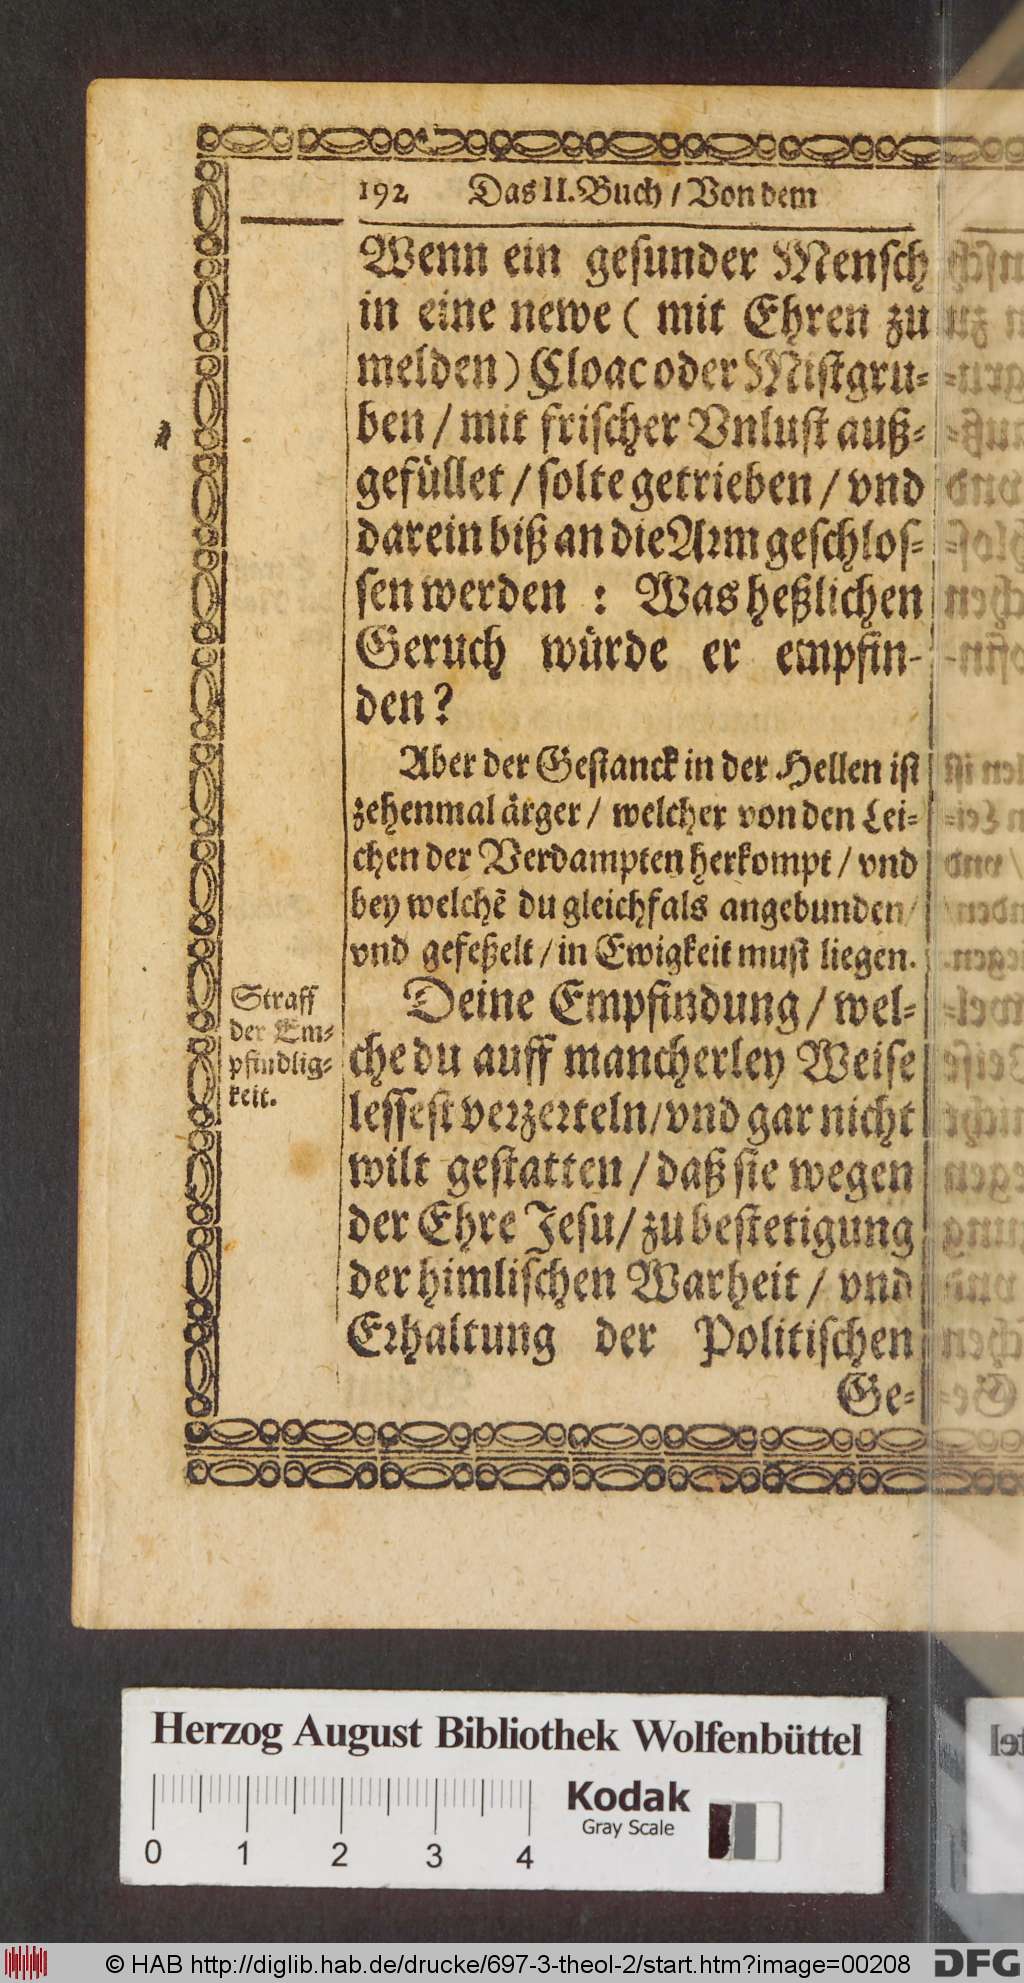 192 Das II. Buch / Von dem
Wenn ein gesunder Mensch
in eine newe ( mit Ehren zu
melden ) Cloac oder Mistgru-
ben / mit frischer Vnlust auß-
gefüllet / solte getrieben / vnd
darein biß an die Arm geschlos-
sen werden : Was heßlichen
Geruch würde er empfin-
den?
Aber der Gestanck in der Hellen ist
zehenmal ärger / welcher von den Lei-
chen der Verdampten herkompt / vnd
bey welchẽ du gleichfals angebunden /
vnd gefeßelt / in Ewigkeit must liegen.
Straff
der Em-
pfindlig-
keit.
Deine Empfindung / wel-
che du auff mancherley Weise
lessest verzerteln / vnd gar nicht
wilt gestatten / daß sie wegen
der Ehre Jesu / zu bestetigung
der himlischen Warheit / vnd
Erhaltung der Politischen
Ge-
Herzog August Bibliothek Wolfenbüttel
0 1 2 3 4
Kodak
Gray Scale
© HAB http://diglib.hab.de/drucke/697-3-theol-2/start.htm?image=00208
DFG